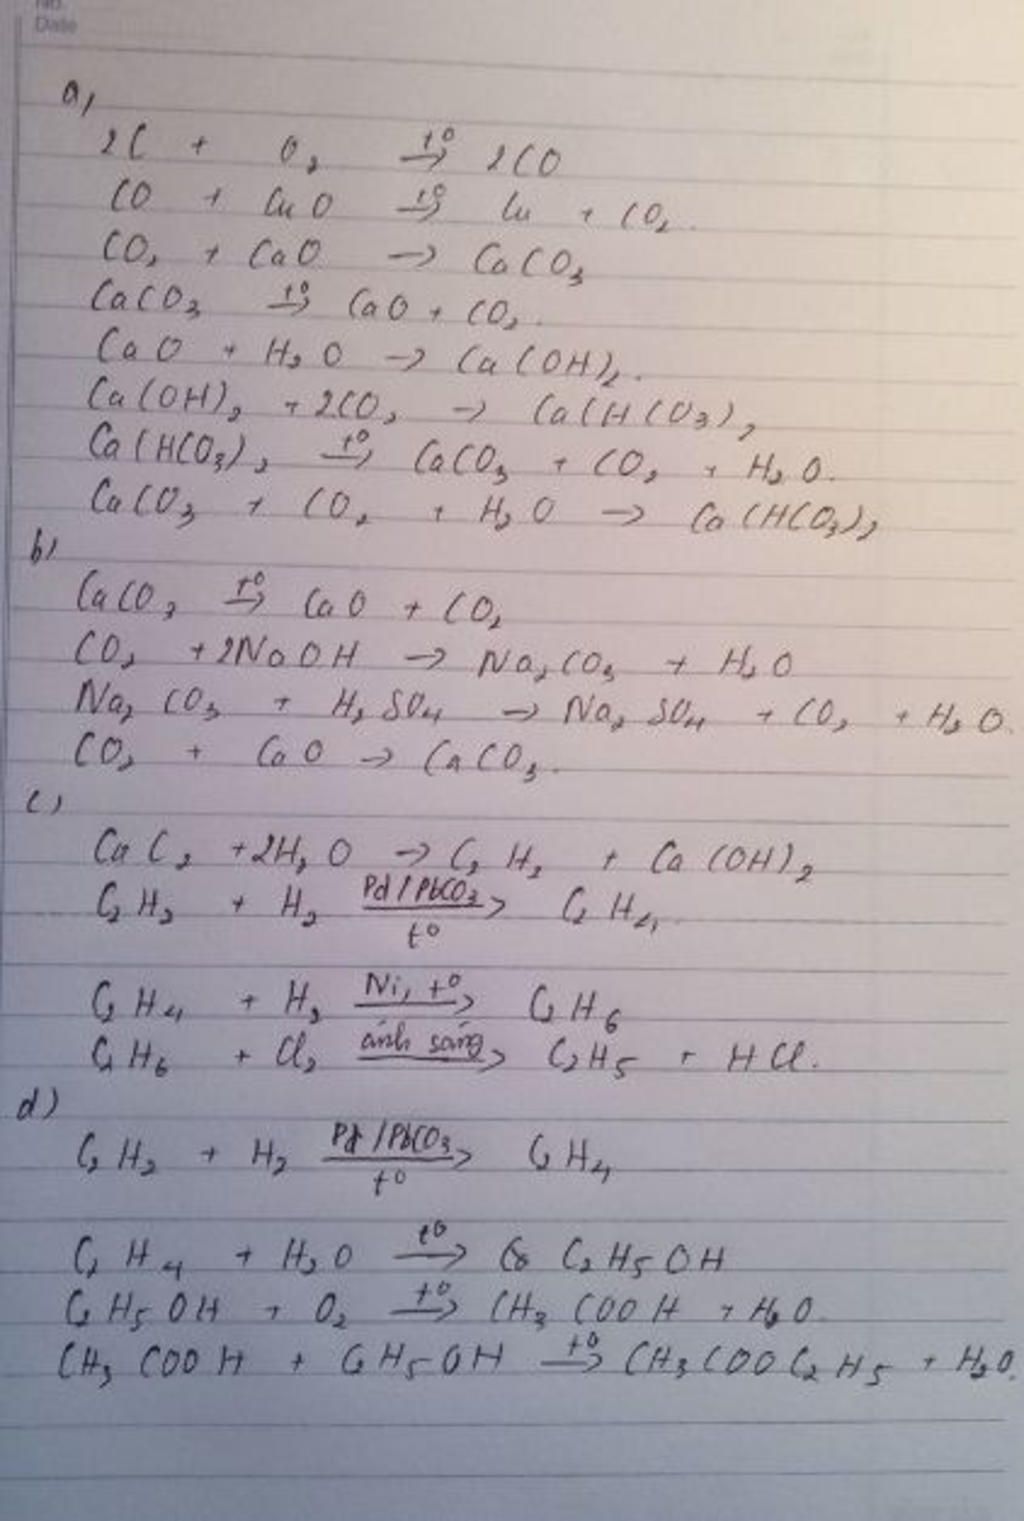 No.
Date
a,
2C + O₂ t°→ 2CO
CO + CuO t°→ Cu + CO₂.
CO₂ + CaO → CaCO₃
CaCO₃ t°→ CaO + CO₂.
CaO + H₂O → Ca(OH)₂.
Ca(OH)₂ + 2CO₂ → Ca(HCO₃)₂
Ca(HCO₃)₂ t°→ CaCO₃ + CO₂ + H₂O.
CaCO₃ + CO₂ + H₂O → Ca(HCO₃)₂
b,
CaCO₃ t°→ CaO + CO₂
CO₂ + 2NaOH → Na₂CO₃ + H₂O
Na₂CO₃ + H₂SO₄ → Na₂SO₄ + CO₂ + H₂O.
CO₂ + CaO → CaCO₃.
c,
CaC₂ + 2H₂O → C₂H₂ + Ca(OH)₂
C₂H₂ + H₂ Pd/PbCO₃→ C₂H₄
t°
C₂H₄ + H₂ Ni, t°→ C₂H₆
C₂H₆ + Cl₂ ánh sáng→ C₂H₅ + HCl.
d)
C₂H₂ + H₂ Pd/PbCO₃→ C₂H₄
t°
C₂H₄ + H₂O t°→ C₂H₅OH
C₂H₅OH + O₂ t°→ CH₃COOH + H₂O.
CH₃COOH + C₂H₅OH t°→ CH₃COOC₂H₅ + H₂O.